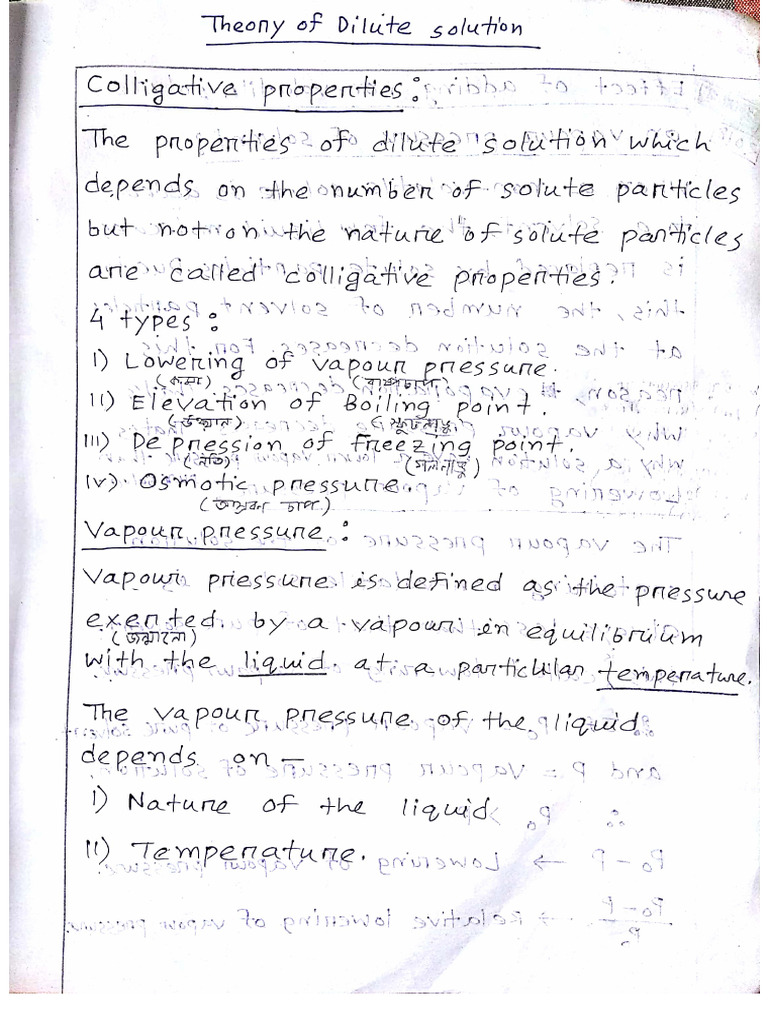 Theory of Dilute solution
Colligative properties:
The properties of dilute solution which
depends on the number of solute particles
but not on the nature of solute particles
are called colligative properties.
4 types:
I) Lowering of vapour pressure.
(কমা) (বাষ্পচাপ)
II) Elevation of Boiling point.
(উত্থান) (স্ফুটনাঙ্ক)
III) Depression of freezing point.
(গলনাঙ্ক)
IV) Osmotic pressure
চাপ.)
Vapour pressure:
Vapour pressure is defined as the pressure
exerted by a vapour in equilibrium
with the liquid at a particular temperature.
The vapour pressure of the liquid
depends on —
I) Nature of the liquid
II) Temperature.